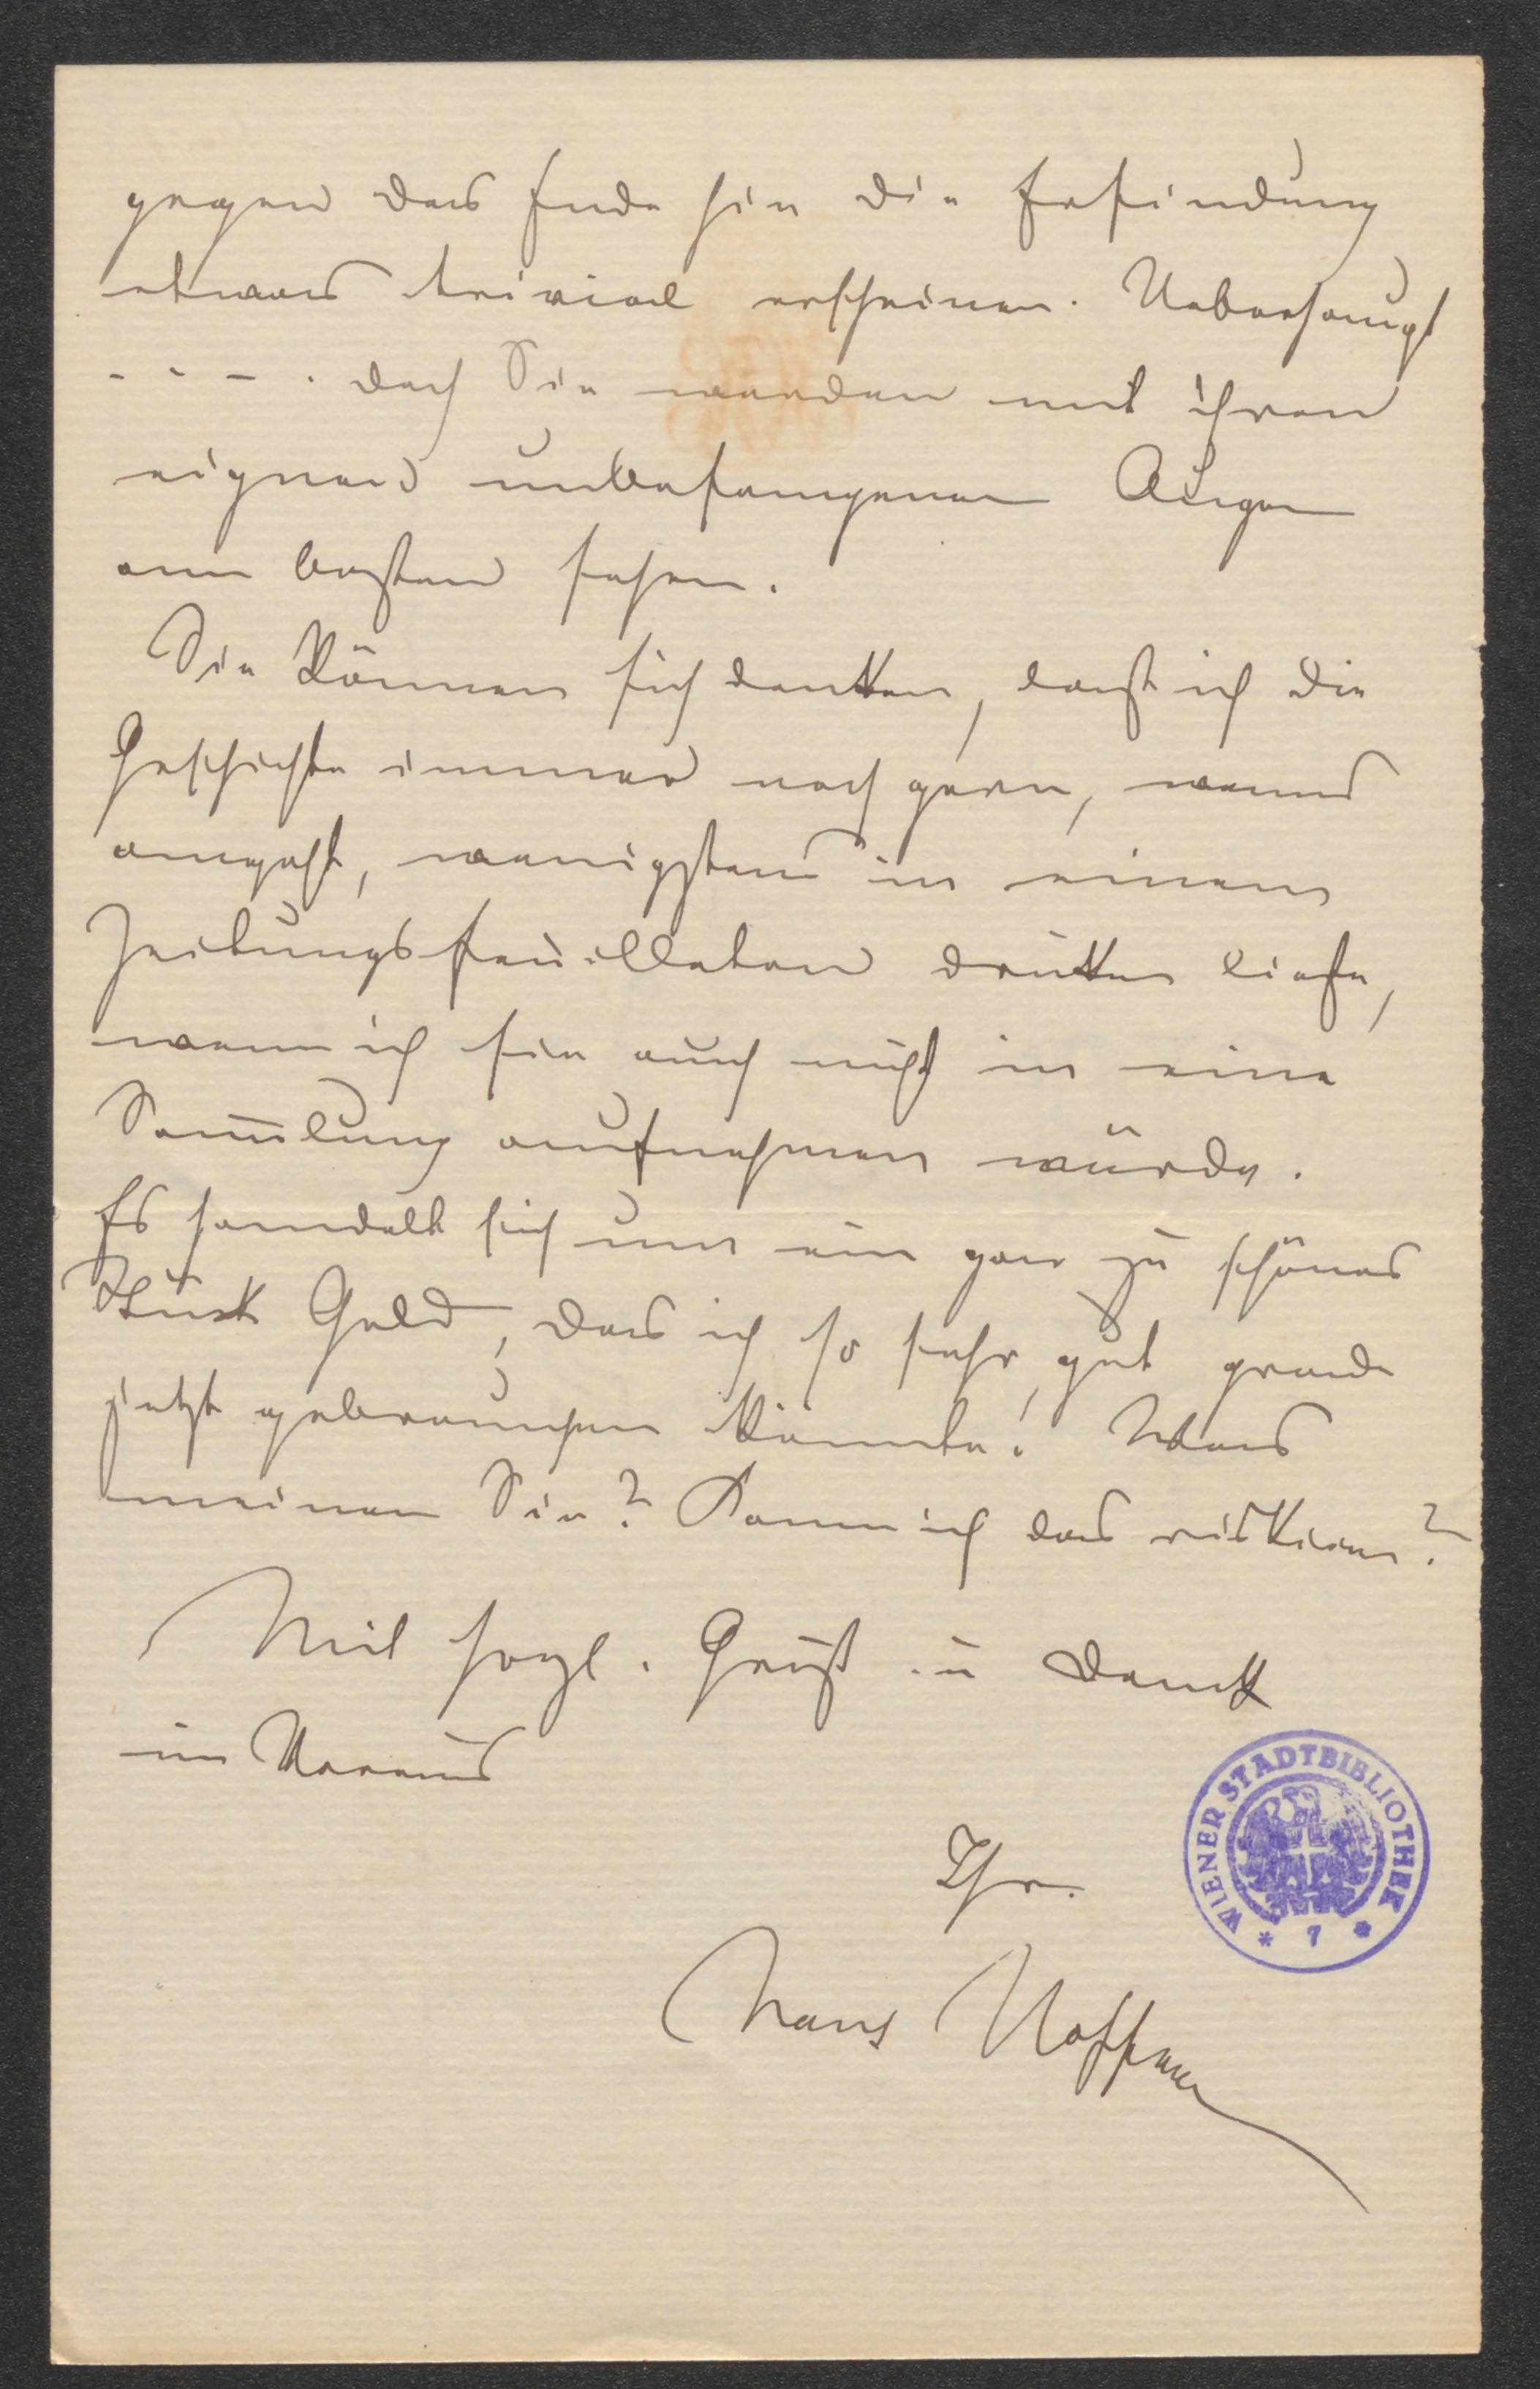 gegen das Ende hin die Erfindung
etwas trivial erscheinen. Ueberhaupt
- - - . doch Sie werden mit ihren
eignen unbefangenen Augen
am besten sehen.
Sie können sich denken, daß ich die
Geschichte immer noch gern, wenns
angeht, wenigstens in einem
Zeitungsfeuilleton drucken ließe,
wenn ich sie auch nicht in eine
Sam̅lung aufnehmen würde.
Es handelt sich um ein gar zu schönes
Stück Geld, das ich so sehr gut grade
jetzt gebrauchen könnte! Was
meinen Sie? Kann ich das riskiren?
Mit hrzl. Gruß u Dank
im Voraus
Ihr
Hans Hoffmann
WIENER STADTBIBLIOTHEK
* 7 *